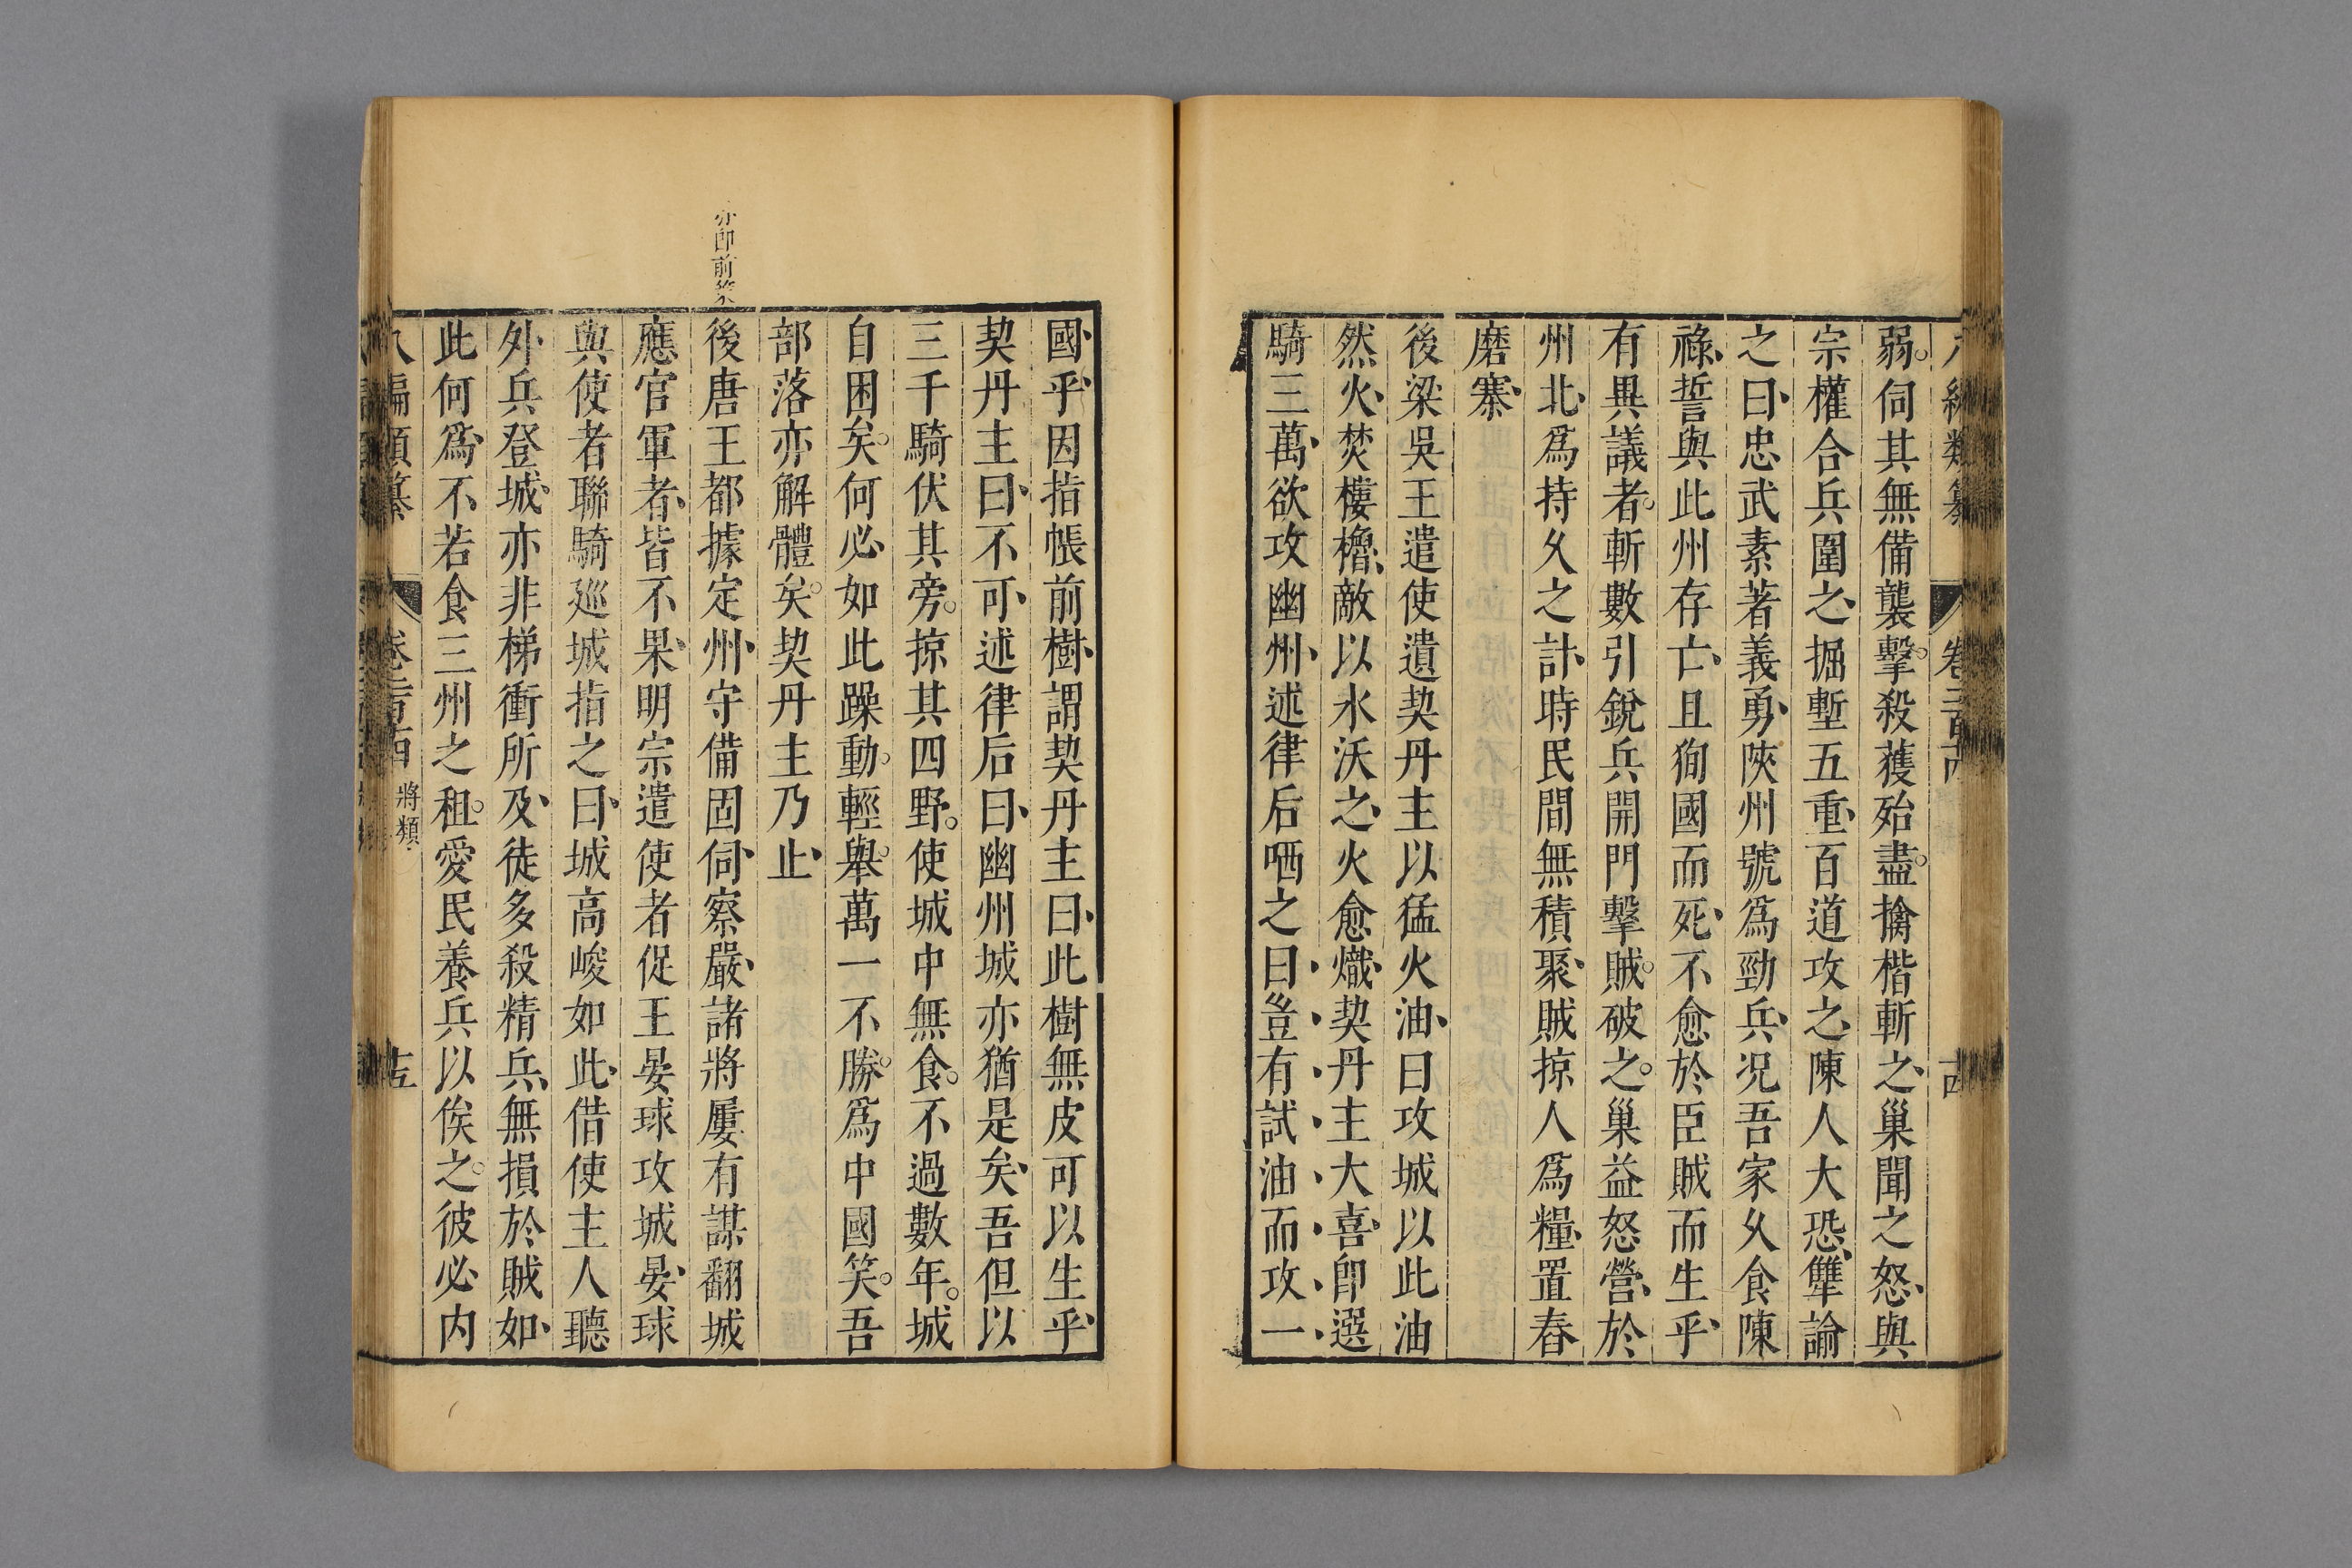 弱伺其無備襲擊殺獲殆盡擒楷斬之巢聞之怒與
宗權合兵圍之掘塹五重百道攻之陳人大恐犨諭
之曰忠武素著義勇陝州號爲勁兵况吾家久食陳
祿誓與此州存亡且狥國而死不愈於臣賊而生乎
有異議者斬數引銳兵開門擊賊破之巢益怒營於
州北爲持久之計時民間無積聚賊掠人爲糧置舂
磨寨
後梁吳王遣使遺契丹主以猛火油曰攻城以此油
然火焚樓櫓敵以水沃之火愈熾契丹主大喜卽選
騎三萬欲攻幽州述律后哂之曰豈有試油而攻一
國乎因指帳前樹謂契丹主曰此樹無皮可以生乎
契丹主曰不可述律后曰幽州城亦猶是矣吾但以
三千騎伏其旁掠其四野使城中無食不過數年城
自困矣何必如此躁動輕舉萬一不勝爲中國笑吾
部落亦解體矣契丹主乃止
亦卽前策
後唐王都據定州守備固伺察嚴諸將屢有謀翻城
應官軍者皆不果明宗遣使者促王晏球攻城晏球
與使者聯騎廵城指之曰城高峻如此借使主人聽
外兵登城亦非梯衝所及徒多殺精兵無損於賊如
此何爲不若食三州之租愛民養兵以俟之彼必内
八編類纂 卷二百四 將類 十五